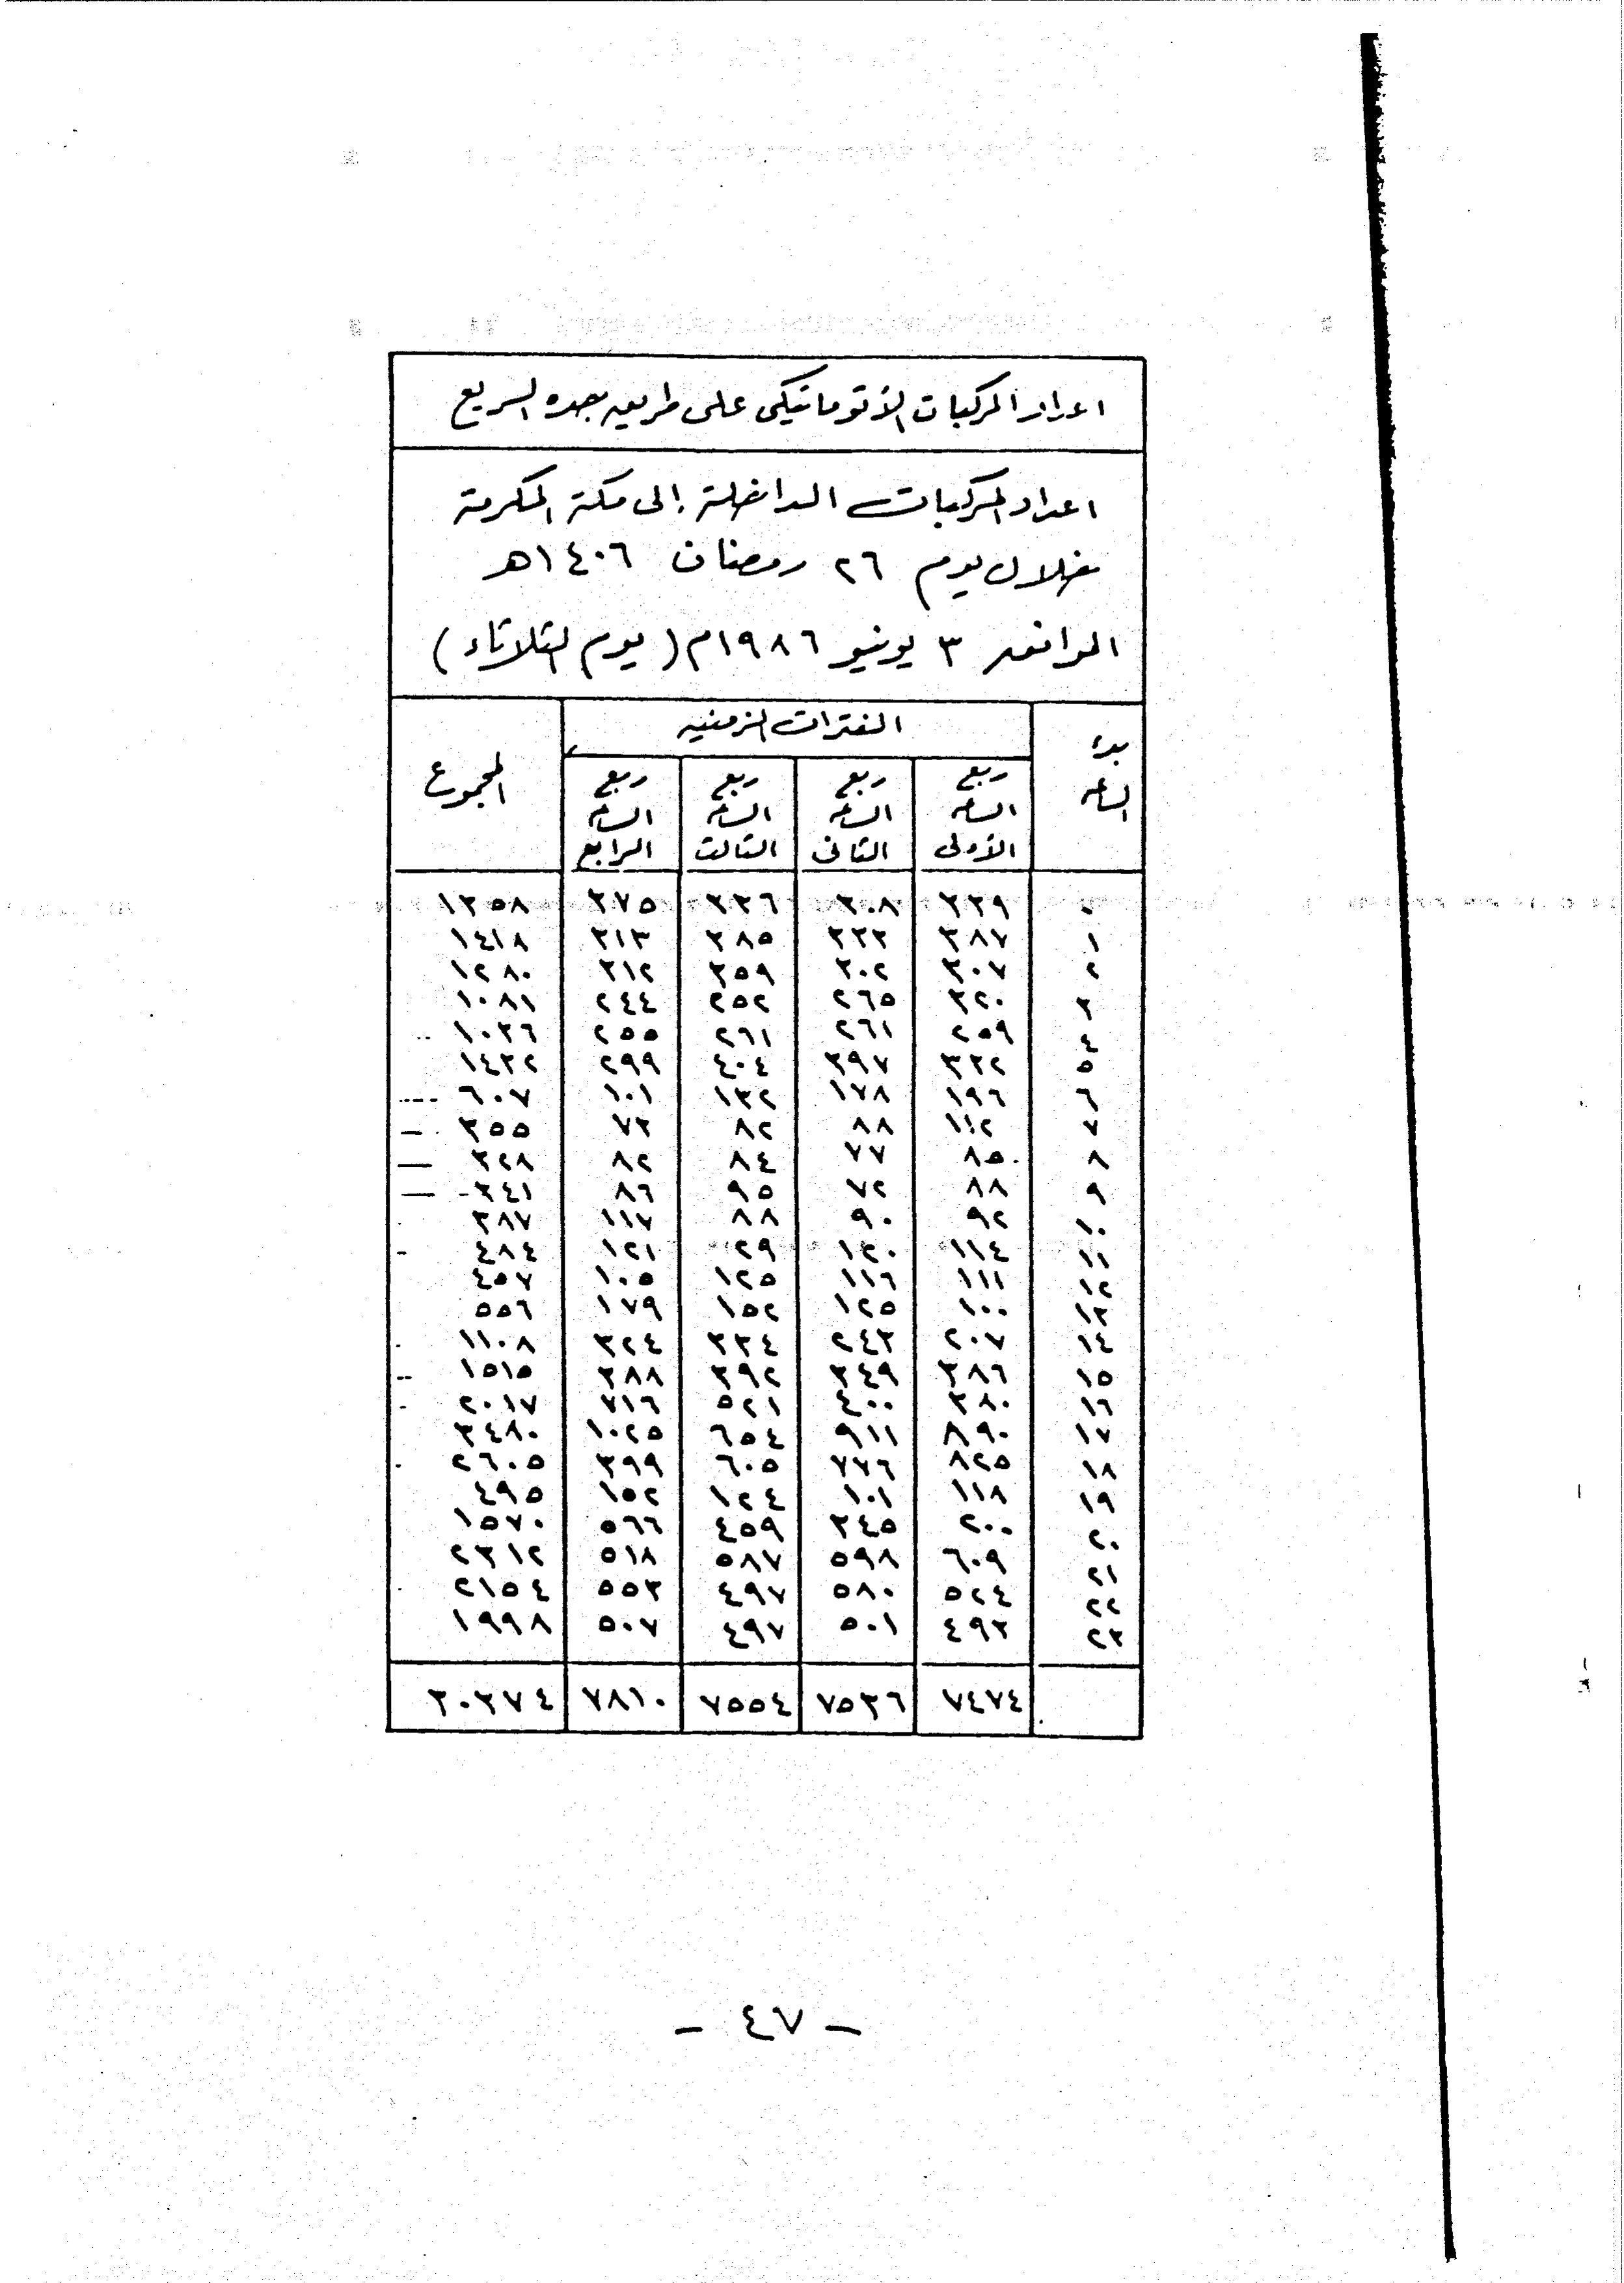 اعداد المركبات الأتوماتيكى على طريق جده السريع
اعداد المركبات الداخلة إلى مكة المكرمة
خلال يوم ٢٦ رمضان ١٤٠٦هـ
الموافق ٣ يونيو ١٩٨٦م (يوم الثلاثاء)
بدء الساعه
الفترات الزمنيه
المجموع
ربع الساعه الأولى
ربع الساعه الثانى
ربع الساعه الثالث
ربع الساعه الرابع
٠ ٣٣٩ ٣٠٨ ٣٣٦ ٣٧٥ ١٣٥٨
١ ٣٨٧ ٣٣٣ ٣٨٥ ٣١٣ ١٤١٨
٢ ٣٠٧ ٣٠٢ ٣٥٩ ٣١٢ ١٢٨٠
٣ ٣٢٠ ٢٦٥ ٢٥٢ ٢٤٤ ١٠٨١
٤ ٢٥٩ ٢٦١ ٢٦١ ٢٥٥ ١٠٣٦
٥ ٣٣٢ ٣٩٧ ٤٠٤ ٢٩٩ ١٤٣٢
٦ ١٩٦ ١٧٨ ١٣٢ ١٠١ ٦٠٧
٧ ١١٢ ٨٨ ٨٢ ٧٣ ٣٥٥
٨ ٨٥ ٧٧ ٨٤ ٨٢ ٣٢٨
٩ ٨٨ ٧٢ ٩٥ ٨٦ ٣٤١
١٠ ٩٢ ٩٠ ٨٨ ١١٧ ٣٨٧
١١ ١١٤ ١٢٠ ٢٩ ١٢١ ٤٨٤
١٢ ١١١ ١١٦ ١٢٥ ١٠٥ ٤٥٧
١٣ ١٠٠ ١٢٥ ١٥٢ ١٧٩ ٥٥٦
١٤ ٢٠٧ ٢٤٣ ٣٣٤ ٣٢٤ ١١٠٨
١٥ ٣٨٦ ٣٤٩ ٣٩٢ ٣٨٨ ١٥١٥
١٦ ٣٨٠ ٤٠٠ ٥٢١ ٧١٦ ٢٠١٧
١٧ ٨٩٠ ٩١١ ٦٥٤ ١٠٢٥ ٣٤٨٠
١٨ ٨٢٥ ٧٧٦ ٦٠٥ ٣٩٩ ٢٦٠٥
١٩ ١١٨ ١٠١ ١٢٤ ١٥٢ ٤٩٥
٢٠ ٢٠٠ ٣٤٥ ٤٥٩ ٥٦٦ ١٥٧٠
٢١ ٦٠٩ ٥٩٨ ٥٨٧ ٥١٨ ٢٣١٢
٢٢ ٥٢٤ ٥٨٠ ٤٩٧ ٥٥٣ ٢١٥٤
٢٣ ٤٩٣ ٥٠١ ٤٩٧ ٥٠٧ ١٩٩٨
٧٤٧٤ ٧٥٣٦ ٧٥٥٤ ٧٨١٠ ٣٠٣٧٤
- ٤٧ -